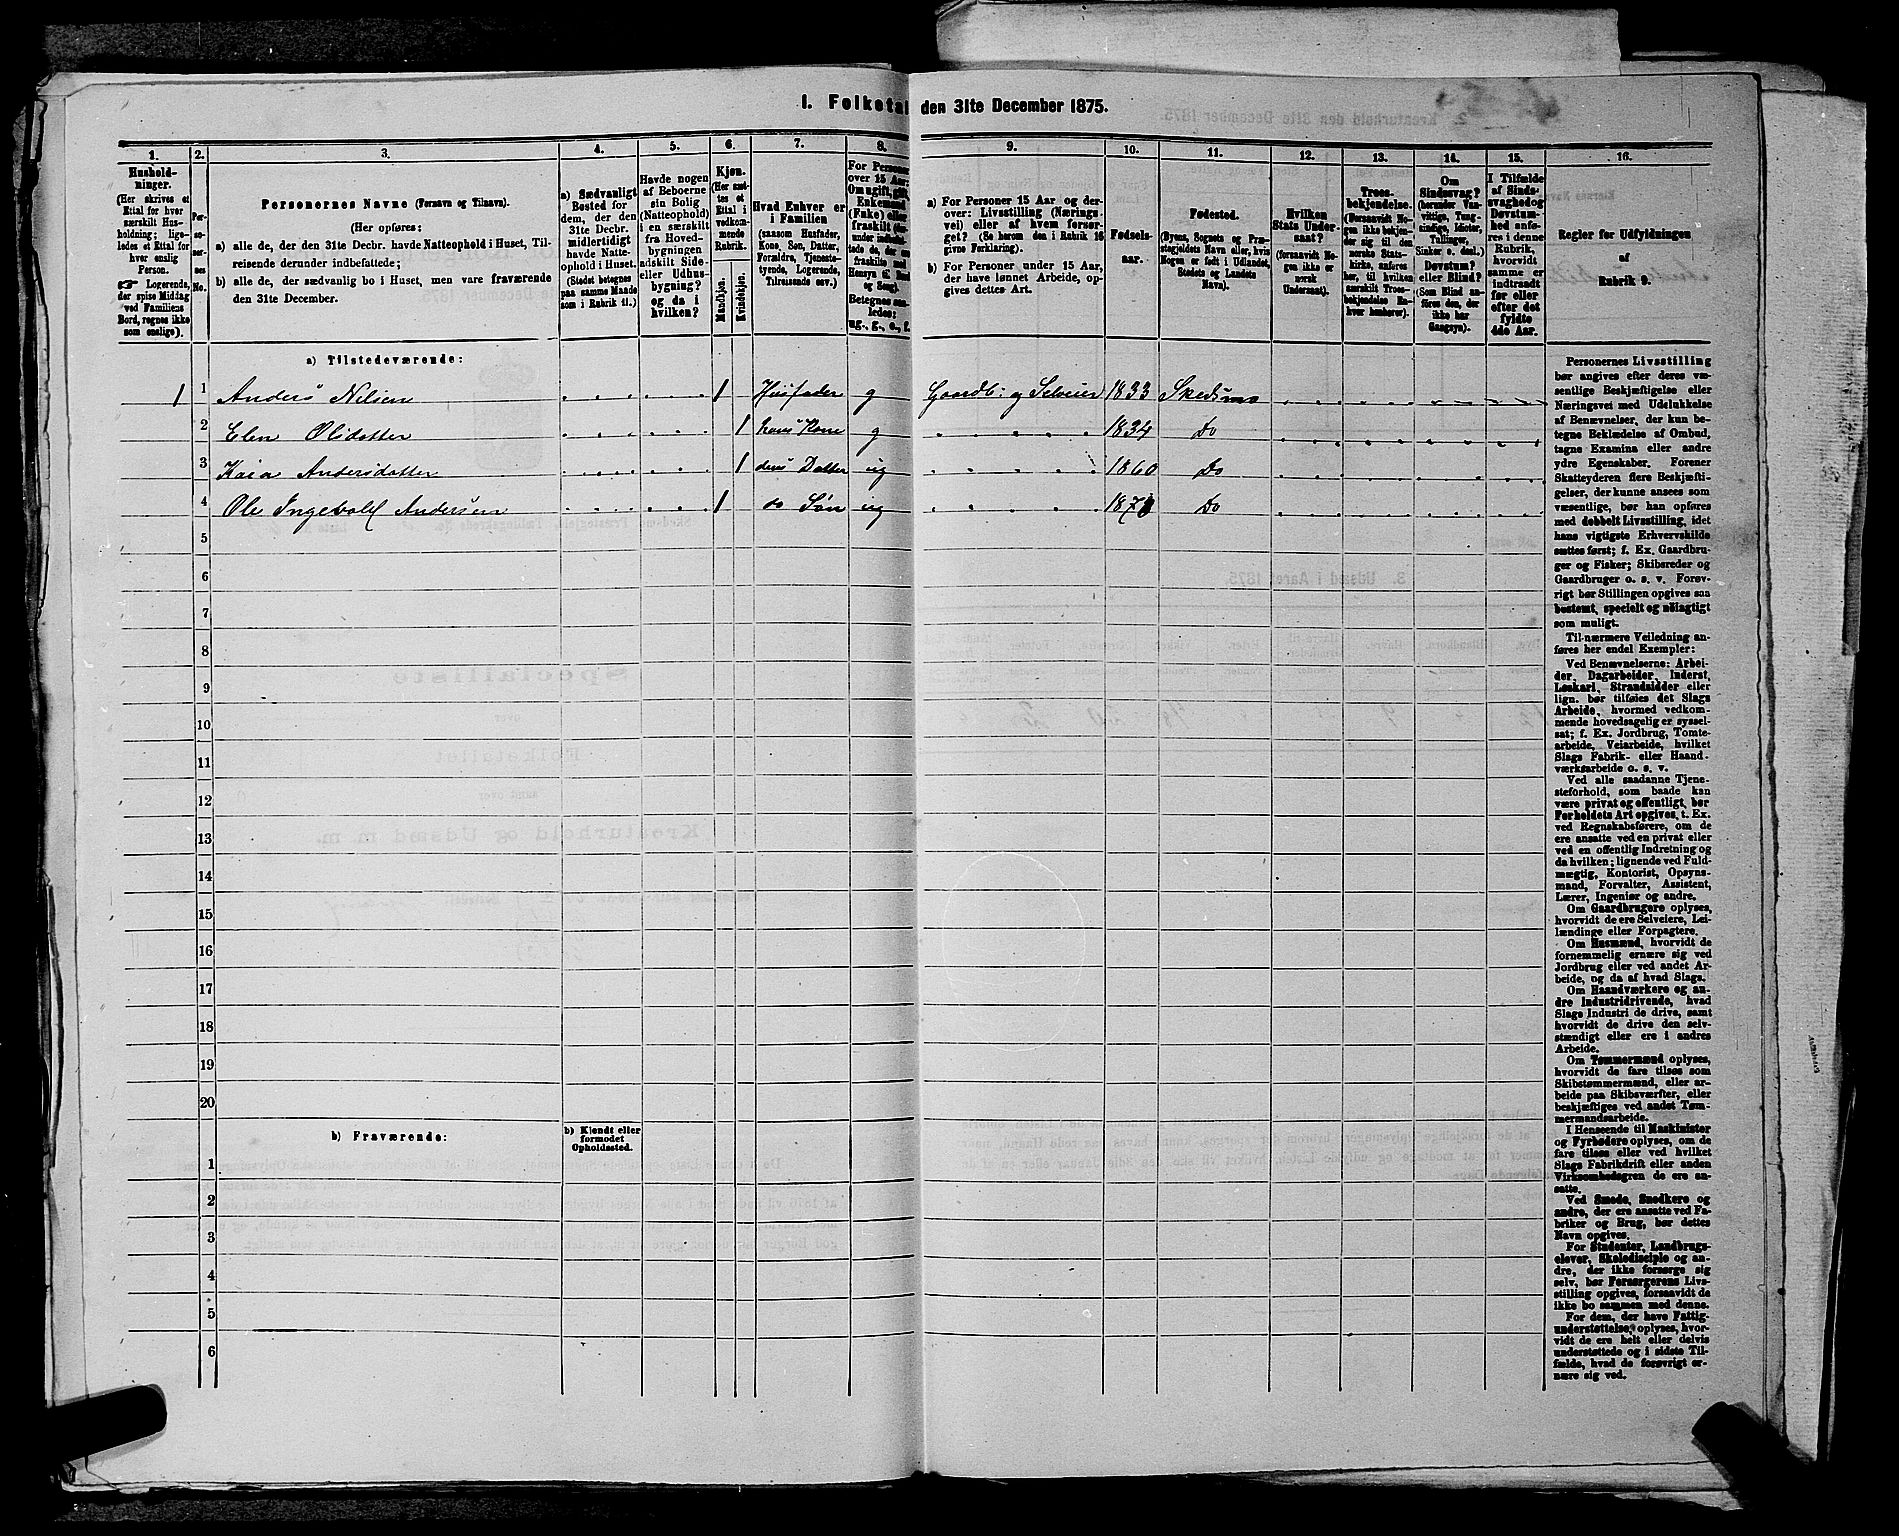 I. Folketal den 31te December 1875.
1.
Hushold-
ninger.
(Her skrives et
Ettal for hver
særskilt Hus-
holdning; lige-
ledes et Ettal for
hver enslig
Person.
☛ Logerende,
der spise Middag
ved Familiens
Bord, regnes ikke
som enslige).
2.
Per-
so-
ner-
nes
No.
3.
Personernes Navne (Fornavn og Tilnavn).
(Her opføres:
a) alle de, der den 31te Decbr. havde Natteophold i Huset, Til-
reisende derunder indbefattede;
b) alle de, der sædvanlig bo i Huset, men vare fraværende
den 31te December.
4.
a) Sædvanligt
Bosted for
dem, der den
31te Decbr.
midlertidigt
havde Natte-
ophold i Huset.
(Stedet betegnes
paa samme Maade
som i Rubrik 11.)
5.
Havde nogen
af Beboerne
sin Bolig
(Natteophold)
i en særskilt
fra Hoved-
bygningen
adskilt Side-
eller Udhus-
bygning?
og da i
hvilken?
6.
Kjøn.
(Her sæt-
tes et
Ettal i
vedkom-
mende
Rubrik.
Mandkjøn.
Kvindekjøn.
7.
Hvad Enhver er
i Familien
(saasom Husfader,
Kone, Søn, Datter,
Forældre, Tjeneste-
tyende, Logerende,
Tilreisende osv.)
8.
For Personer
over 15 Aar:
Om ugift, gift,
Enkemand
(Enke) eller
fraskilt
Betegnes saa-
ledes:
ug., g., e., f.
9.
a) For Personer 15 Aar og der-
over: Livsstilling (Nærings-
vei) eller af hvem forsør-
get? (Se herom den i Rubrik 16
givne Forklaring).
b) For Personer under 15 Aar,
der have lønnet Arbeide, op-
gives dettes Art.
10.
Fødsels-
aar.
11.
Fødested.
(Byens, Sognets og Præ-
stegjeldets Navn eller, hvis
Nogen er født i Udlandet,
Stedets og Landets
Navn).
12.
Hvilken
Stats Under-
saat?
(forsaavidt No-
gen ikke er
norsk
Undersaat).
13.
Troes-
bekjendelse.
(Forsaavidt No-
gen ikke bekjen-
der sig til den
norske Stats-
kirke, anføres
her, til hvilken
særskilt Troes-
bekjendelse En-
hver henhører).
14.
Om
Sindssvag?
(herunder Van-
vittige, Tung-
sindige, Idioter,
Tullinger,
Sinker o. desl.)
Døvstum?
eller Blind?
(Som Blind an-
føres den, der
ikke har
Gangsyn).
15.
I Tilfælde
af Sinds-
svaghed og
Døvstum-
hed anfø-
res i denne
Rubrik,
hvorvidt
samme er
indtraadt
før eller
efter det
fyldte
4de Aar.
16.
Regler for Udfyldningen
af
Rubrik 9.
a) Tilstedeværende:
1 1 Anders Nilsen 1 Husfader g Gaardb: og Selveier 1833 Skedsmo
2 Elen Olsdatter 1 hans Kone g 1834 Do
3 Kaia Andersdatter 1 deres Datter ug 1860 Do
4 Ole Ingebold Andersen 1 do Søn ug 1871 Do
5
6
7
8
9
10
11
12
13
14
15
16
17
18
19
20
b) Fraværende:
b) Kjendt eller
formodet
Opholdssted.
1
2
3
4
5
6
Personernes Livsstilling
bør angives efter deres væ-
sentlige Beskjæftigelse eller
Næringsvei med Udelukkelse
af Benævnelser, der kun be-
tegne Beklædelse af Ombud,
tagne Examina eller andre
ydre Egenskaber. Forener
Skatteyderen flere Beskjæfti-
gelser, der kunne ansees som
væsentlige, bør han opføres
med dobbelt Livsstilling, idet
hans vigtigste Erhvervskilde
sættes først; f. Ex. Gaardbru-
ger og Fisker; Skibsreder og
Gaardbruger o. s. v. Forøv-
rigt bør Stillingen opgives saa
bestemt, specielt og nøiagtigt
som muligt.
Til nærmere Veiledning an-
føres her endel Exempler:
Ved Benævnelserne: Arbei-
der, Dagarbeider, Inderst,
Løskarl, Strandsidder eller
lign. bør tilføies det Slags
Arbeide, hvormed vedkom-
mende hovedsagelig er syssel-
sat; f. Ex. Jordbrug, Tomte-
arbeide, Veiarbeide, hvilket
Slags Fabrik- eller Haand-
værksarbeide o. s. v.
Ved alle saadanne Tjene-
steforhold, som baade kan
være privat og offentligt, bør
Forholdets Art opgives, t. Ex.
ved Regnskabsførere, om de
ere ansatte ved en privat eller
ved en offentlig Indretning og
da hvilken; lignende ved Fuld-
mægtig, Kontorist, Opsyns-
mand, Forvalter, Assistent,
Lærer, Ingeniør og andre.
Om Gaardbrugere oplyses,
hvorvidt de ere Selveiere, Lei-
lændinge eller Forpagtere.
Om Husmænd, hvorvidt de
fornemmelig ernære sig ved
Jordbrug eller ved andet Ar-
beide, og da af hvad Slags.
Om Haandværkere og an-
dre Industridrivende, hvad
Slags Industri de drive, samt
hvorvidt de drive den selv-
stændigt eller ere i andres
Arbeide.
Om Tømmermænd oplyses,
hvorvidt de fare tilsøs som
Skibstømmermænd, eller ar-
beide paa Skibsværfter, eller
beskjæftiges ved andet Tøm-
mermandsarbeide.
I Henseende til Maskinister
og Fyrbødere oplyses, om de
fare tilsøs eller ved hvilket
Slags Fabrikdrift eller anden
Virksomhedsgren de ere an-
satte.
Ved Smede, Snedkere og
andre, der ere ansatte ved Fa-
briker og Brug, bør dettes
Navn opgives.
For Studenter, Landbrugs-
elever, Skoledisciple og an-
dre, der ikke forsørge sig
selv, bør Forsørgerens Livs-
stilling opgives, forsaavidt de
ikke bo sammen med denne.
For dem, der have Fattig-
understøttelse, oplyses, hvor-
vidt de ere helt eller delvis
understøttede og i sidste Til-
fælde, hvad de forøvrigt er-
nære sig ved.